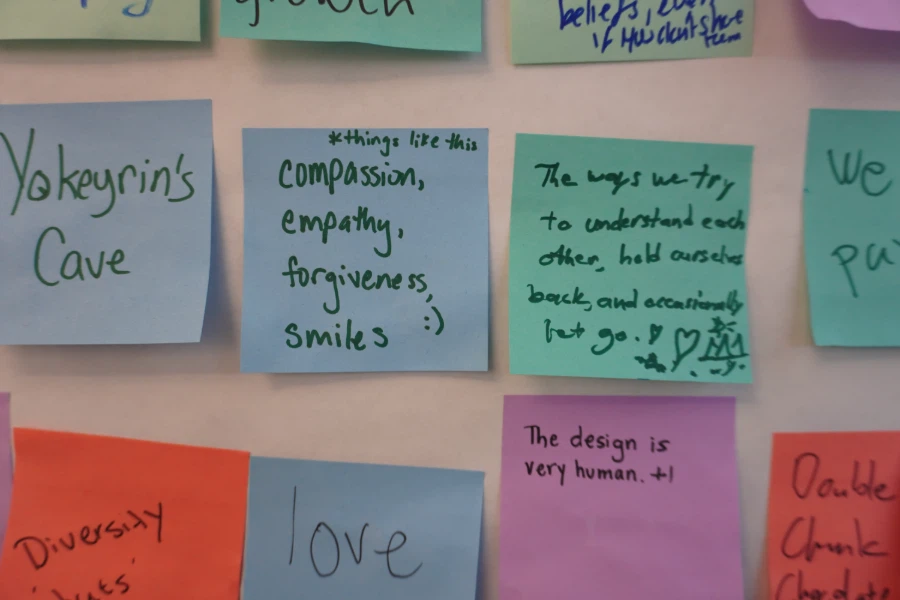 growth
beliefs, even
if MW don't share
them
Yokeyrin's
Cave
*things like this
compassion,
empathy,
forgiveness,
smiles :)
The ways we try
to understand each
other, hold ourselves
back, and occasionally
let go.
We
pu
Diversity
love
The design is
very human. +1
Double
Chunk
Chocolate